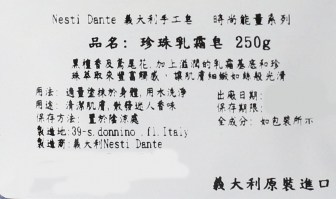 Nesti Dante 義大利手工皂 時尚能量系列
品名: 珍珠乳霜皂 250g
黑檀香及鳶尾花,加上滋潤的乳霜基底和珍
珠萃取來豐富膚感,讓肌膚細緻如絲般光滑
用法: 適量塗抹於身體,用水洗淨 出廠日期:
用途: 清潔肌膚,散發迷人香味 保存期限:
保存方法: 置於陰涼處 全成分: 如包裝所示
製造地:39-s.donnino .fl.Italy
製造商:義大利Nesti Dante
義大利原裝進口